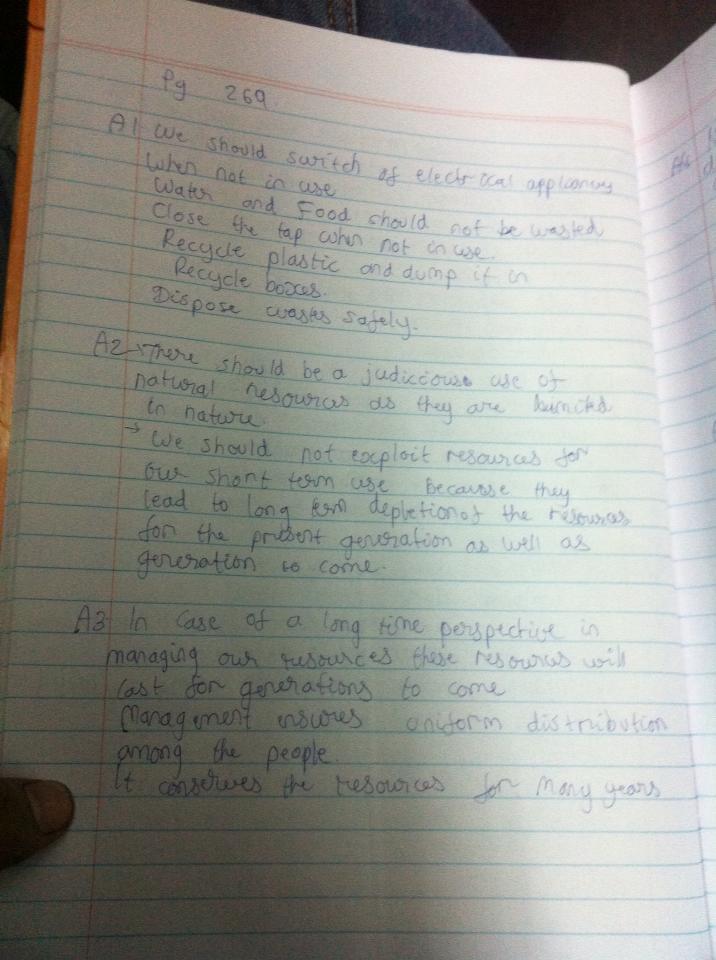 Pg 269.
A1 We should switch of electrical appliances
when not in use
Water and Food should not be wasted
Close the tap when not in use.
Recycle plastic and dump it in
Recycle boxes.
Dispose wastes safely.
A2 → There should be a judicciouse use of
natural resources as they are limited
in nature.
→ We should not exploit resources for
our short term use because they
lead to long term depletion of the resources
for the present generation as well as
generation to come.
A3 In case of a long time perspective in
managing our resources these resources will
last for generations to come
Management ensures uniform distribution
among the people.
It conserves the resources for many years
A4